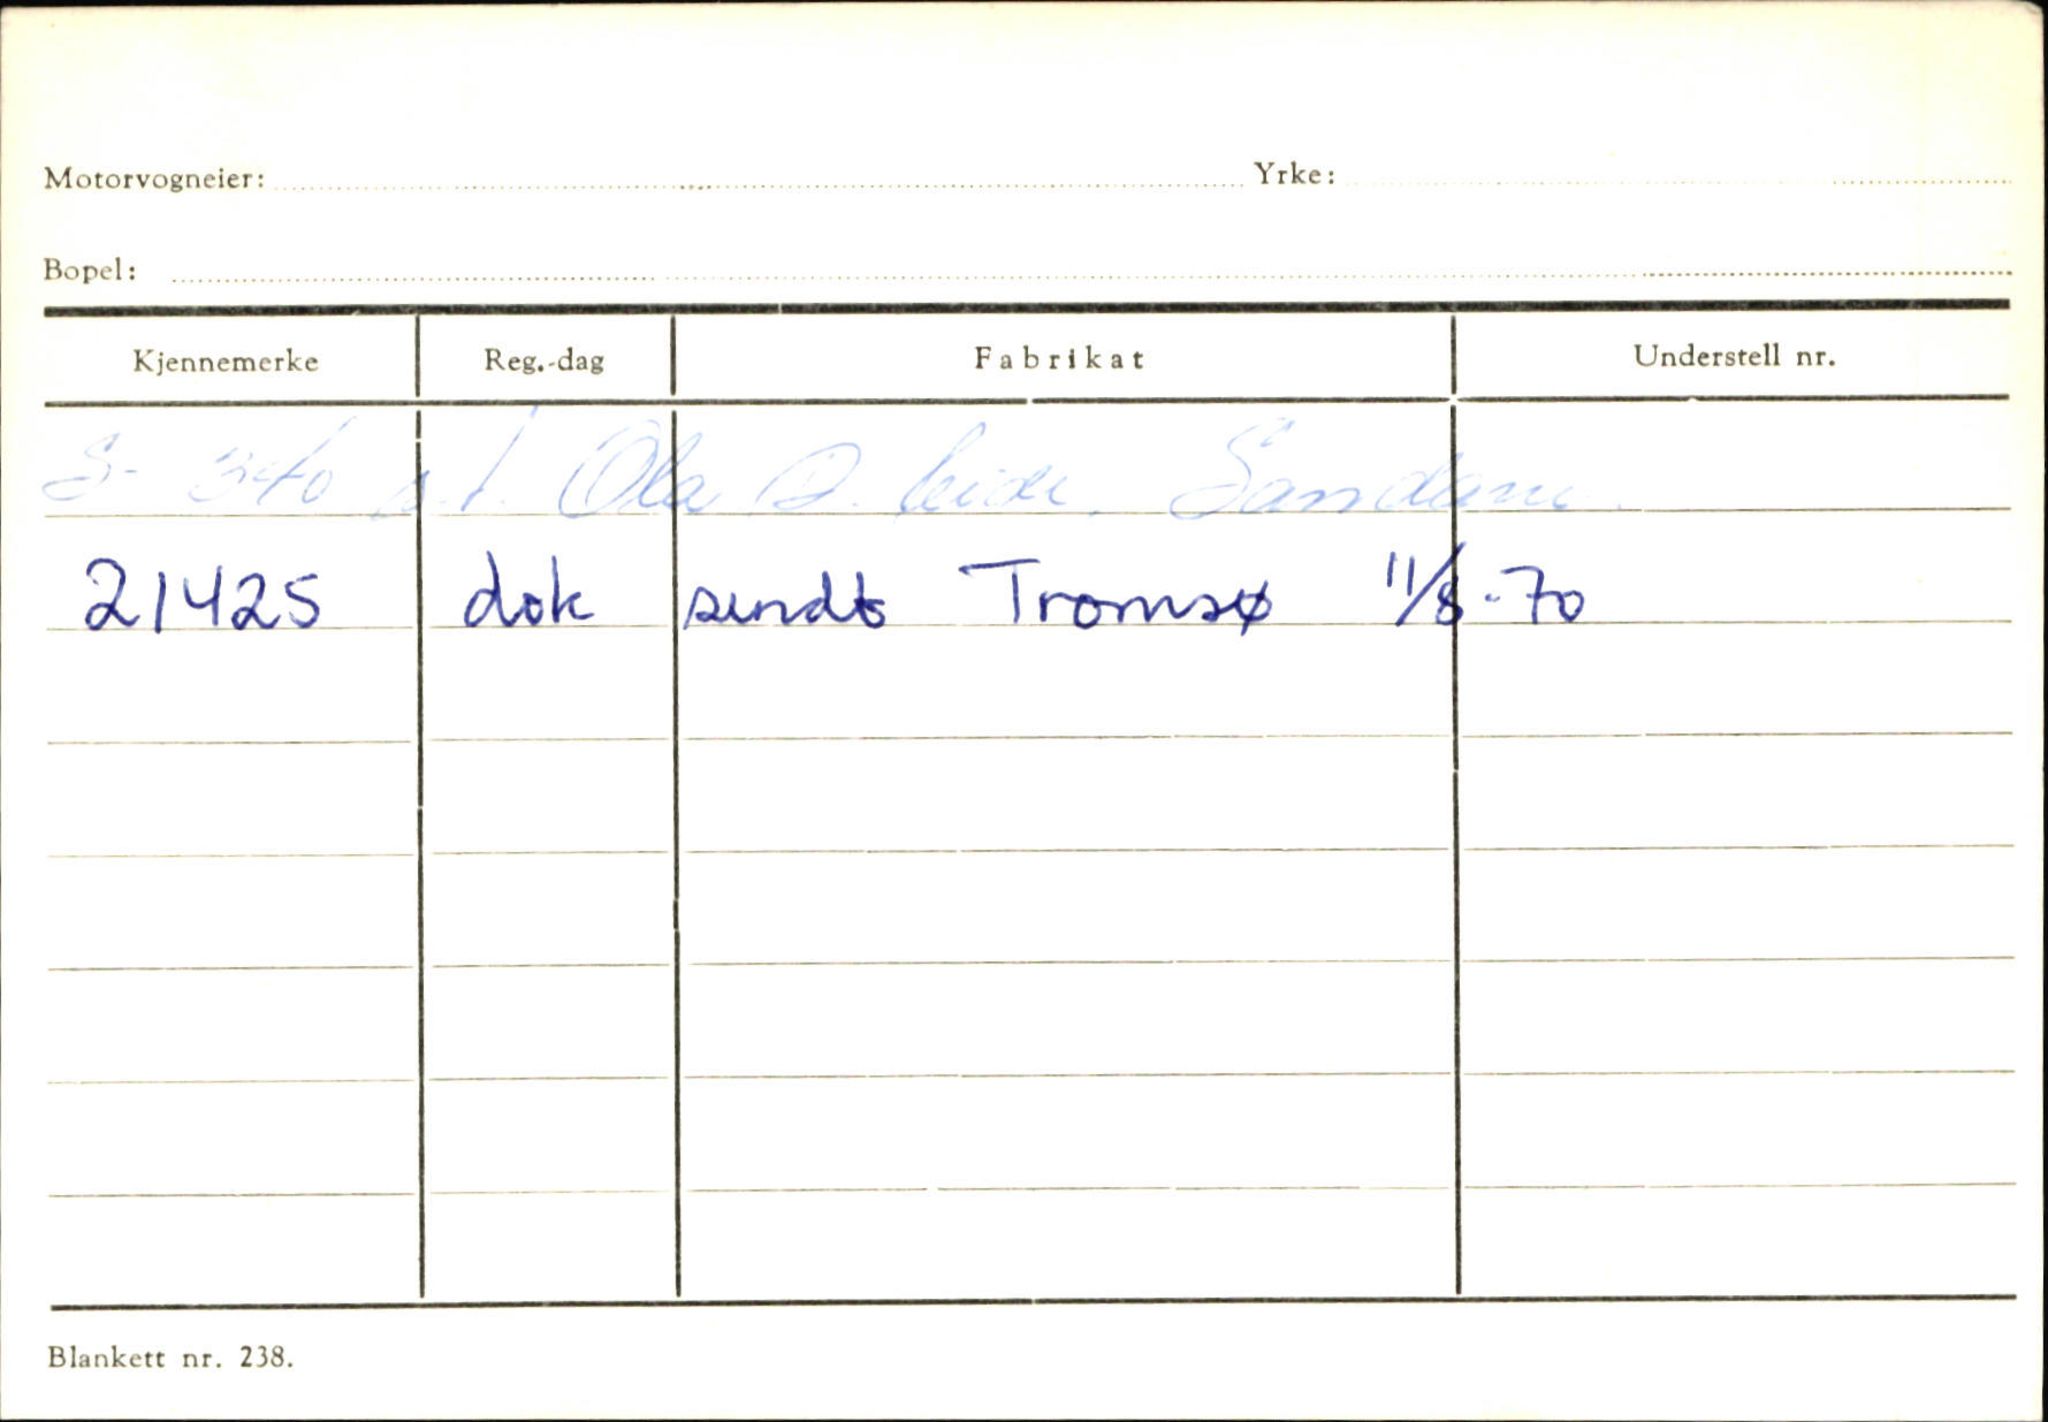 Motorvogneier: Yrke:
Bopel:
Kjennemerke Reg.-dag Fabrikat Understell nr.
S- 340 s.t. Ola D. Eide, Sandane.
21425 dok sendt Tromsø 11/8-70
Blankett nr. 238.